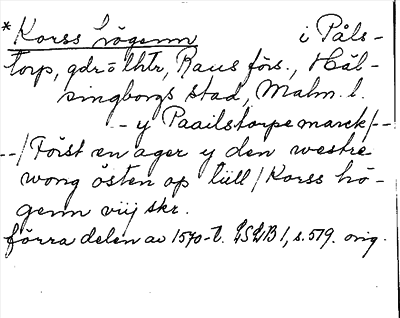 *Korss högenn i Påls-
torp, gdr o lhtr, Raus förs., Häl-
singborgs stad, Malm. l.
-- y Paailstorpe marck/--
--/Först en ager y den westre
wong östen op till/Korss hö-
genn viij skr.
förra delen av 1570-t. LSLB 1, s. 519. orig.